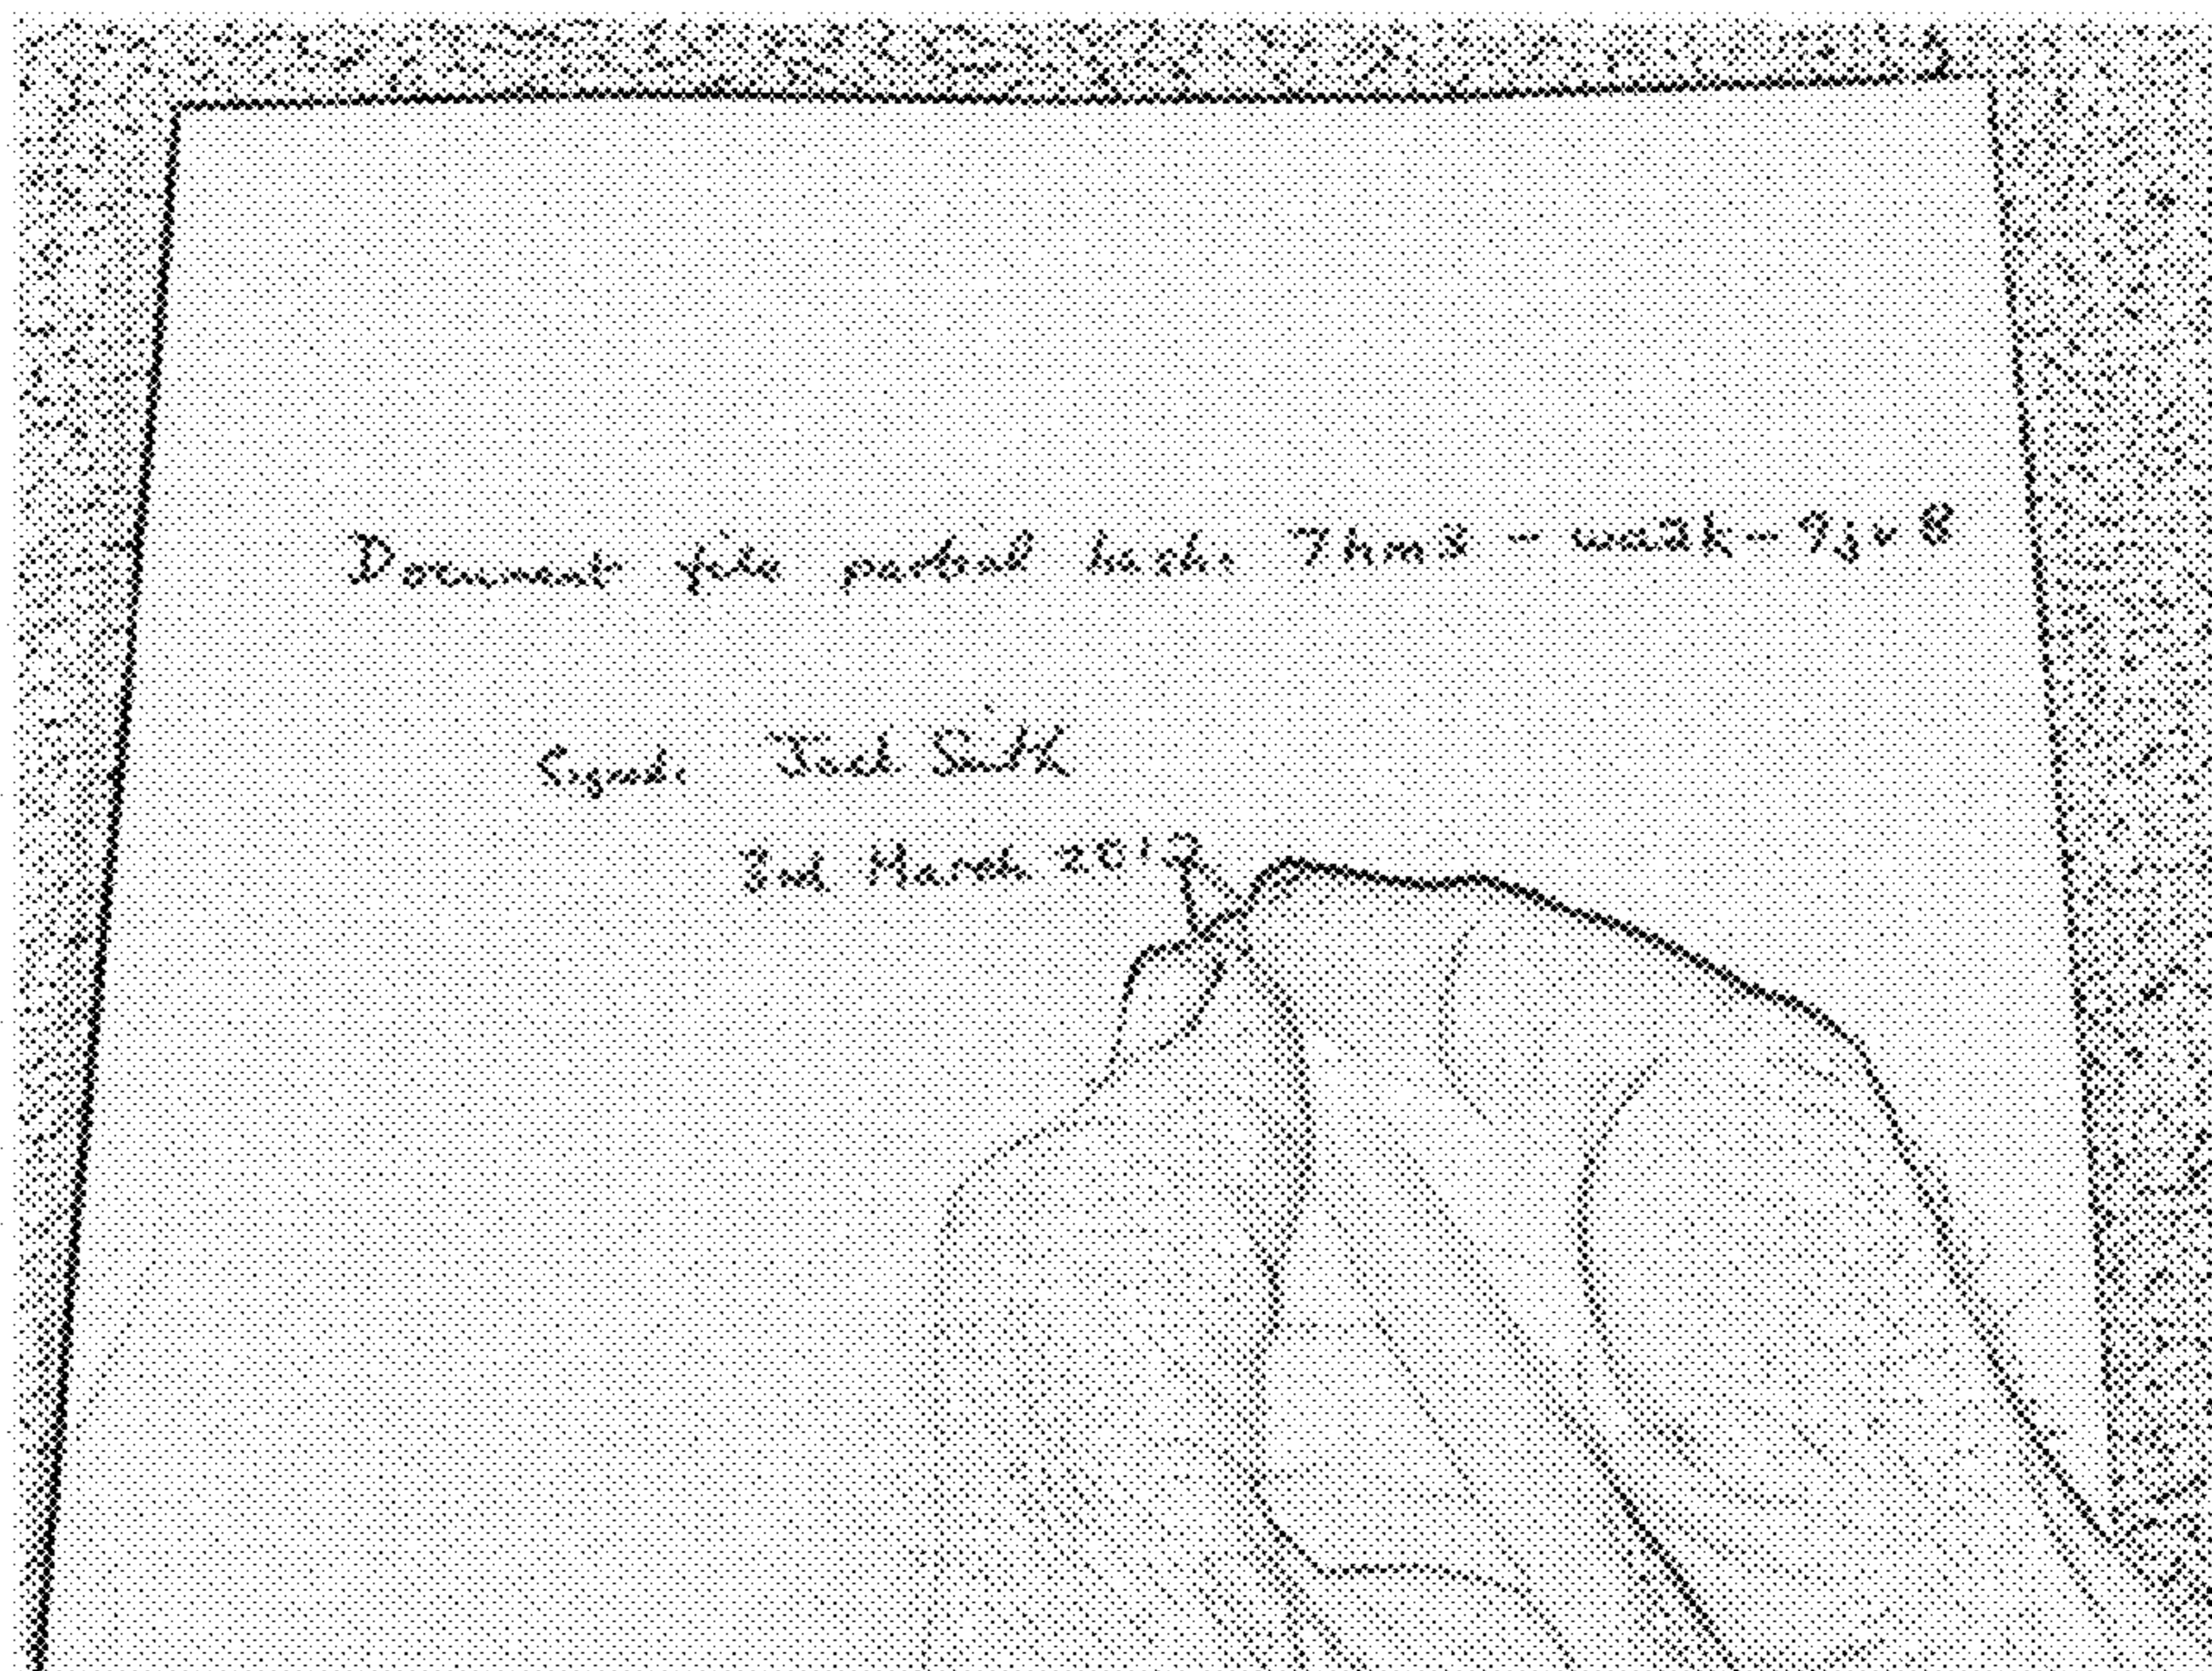 Document file partial hash: 7hm3 - wa2k - 9jv8
Signed: Jack Smith
3rd March 201